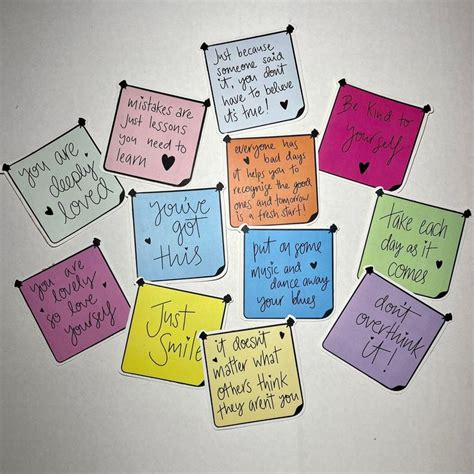 Just because
someone said
it, you don't
have to believe
it's true!
mistakes are
just lessons
you need to
learn
Be Kind to
yourself
everyone has
bad days
it helps you to
recognise the good
ones and tomorrow
is a fresh start!
you are
deeply
loved
you've
got
this
take each
day as it
comes
put on some
music and
dance away
your blues
you are
lovely
so love
yourself
Just
Smile
don't
overthink
it!
it doesn't
matter what
others think
they aren't you